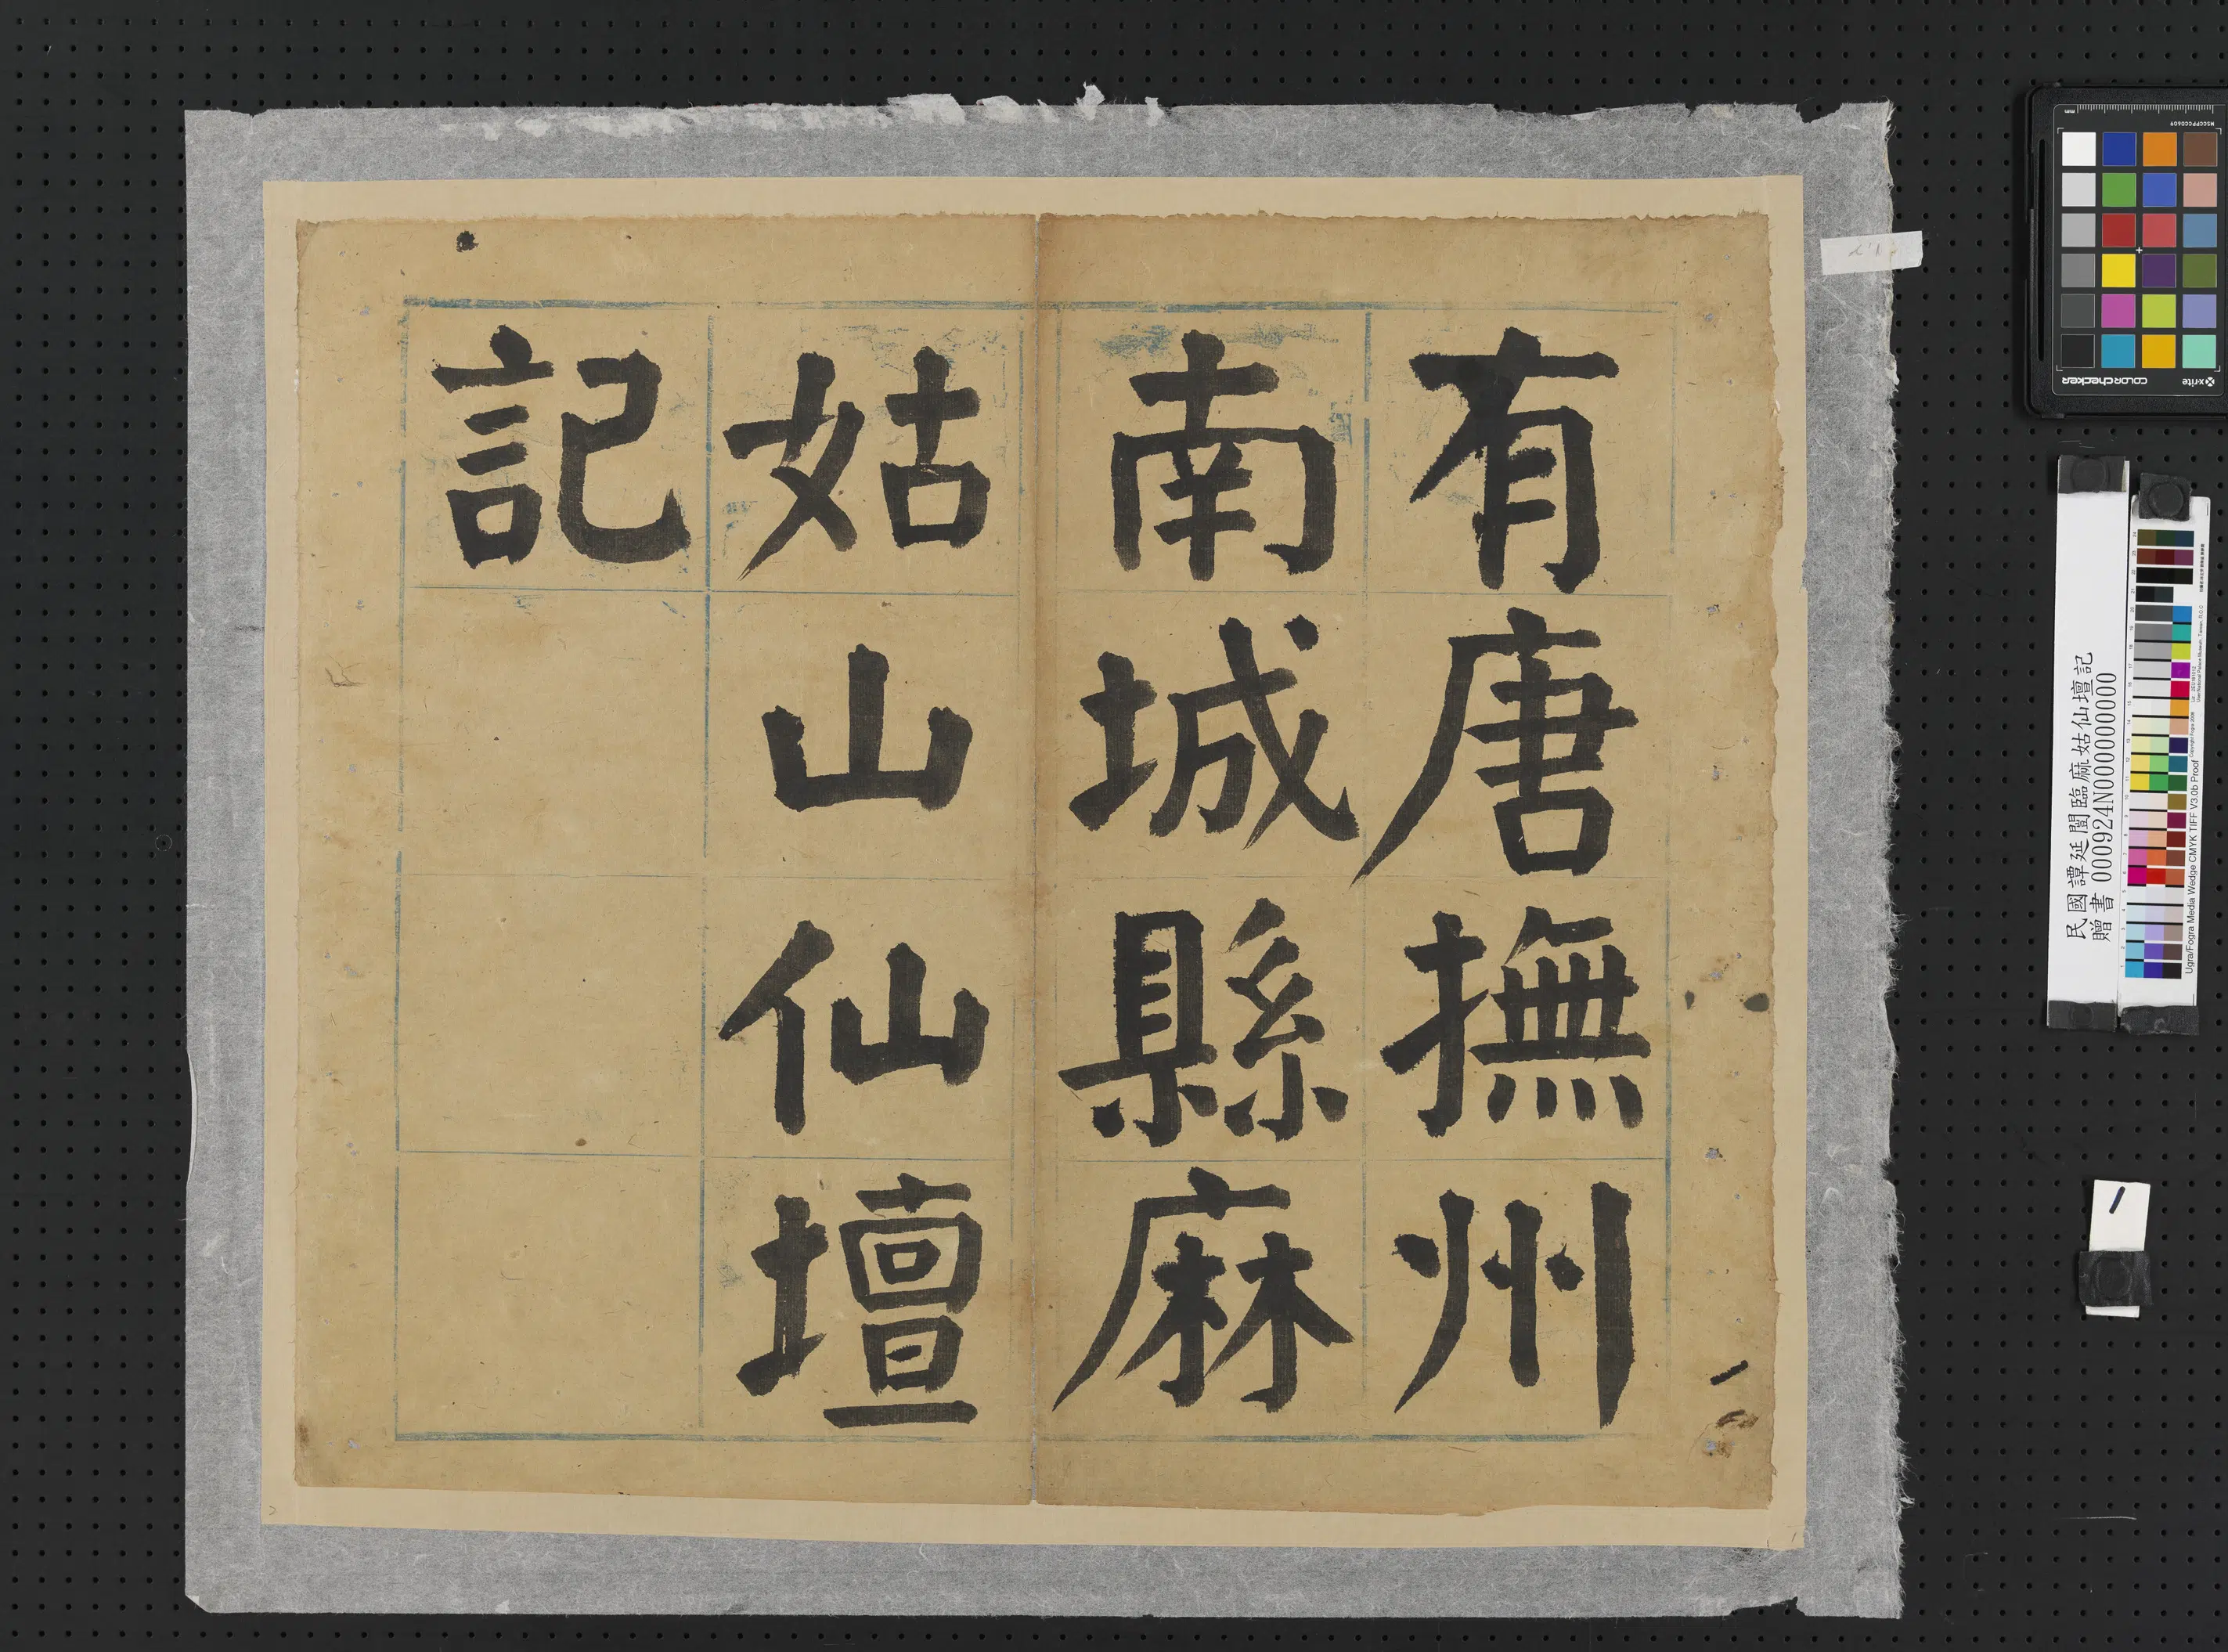 有唐撫州
南城縣麻
姑山仙壇
記
民國譚延闓臨麻姑仙壇記
贈書 000924N000000000
Ugra/Fogra Media Wedge CMYK TIFF V3.0b Proof
x-rite
colorchecker
MSCCPPCC0609